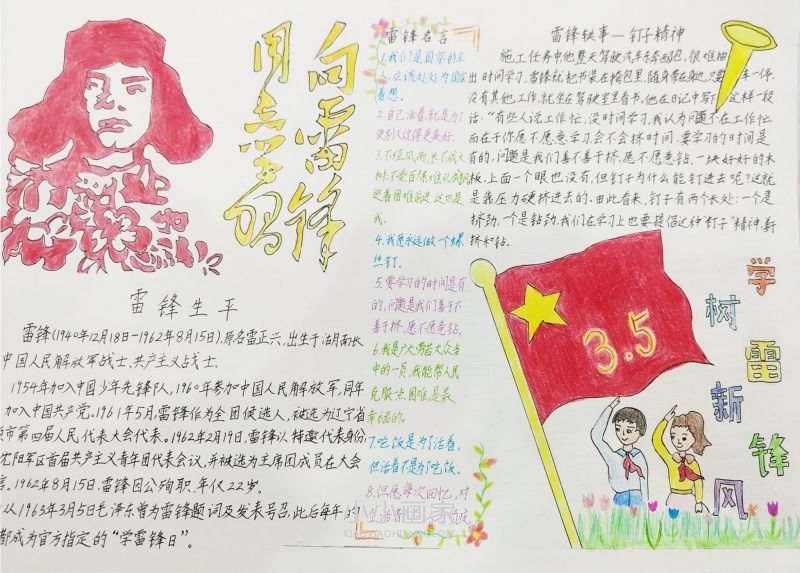 向雷锋
同志学习
雷锋生平
雷锋(1940年12月18日-1962年8月15日),原名雷正兴,出生于湖南长
中国人民解放军战士,共产主义战士。
1954年加入中国少年先锋队,1960年参加中国人民解放军,同年
加入中国共产党。1961年5月,雷锋作为全团候选人,被选为辽宁省
市第四届人民代表大会代表。1962年2月19日,雷锋以特邀代表身份
沈阳军区首届共产主义青年团代表会议,并被选为主席团成员在大会
言。1962年8月15日,雷锋因公殉职,年仅22岁。
从1963年3月5日毛泽东曾为雷锋题词及发表号召,此后每年的
都成为官方指定的“学雷锋日”。
雷锋名言
1.我们是国家的主
人,应该处处为国家
着想。
2.自己活着,就是为了
使别人过得更美好。
3.不经风雨,长不成大
树,不受百炼,难以成钢
迎着困难前进,这也是
我
4.我愿永远做个螺
丝钉。
5.要学习的时间是有
的,问题是我们善于不
善于挤,愿不愿意钻。
6.我是广大劳苦大众当
中的一员,我能帮人民
克服一点困难,是最
幸福的。
7.吃饭是为了活着,
但活着不是为了吃饭。
8.但愿每次回忆,对
生活
雷锋轶事一钉子精神
施工任务中他整天驾驶汽车东奔西跑,很难抽
出时间学习,雷锋就把书装在挎包里,随身带在身边,只要车一停,
没有其他工作,就坐在驾驶室里看书。他在日记中写下这样一段
话:“有些人说工作忙,没时间学习,我认为问题不在工作忙,
而在于你愿不愿意学习,会不会挤时间,要学习的时间是
有的,问题是我们善不善于挤,愿不愿意钻。一块好好的木
板,上面一个眼也没有,但钉子为什么能钉进去呢?这就
是靠压力硬挤进去的。由此看来,钉子有两个长处:一个是
挤劲,一个是钻劲,我们在学习上也要提倡这种“钉子”精神,善于
挤和钻。
3.5
学雷锋
树新风
小小画家